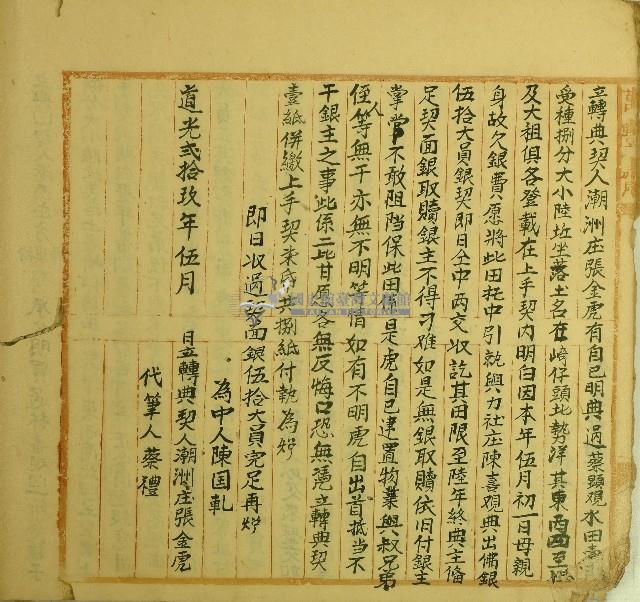 立轉典契人潮洲庄張金虎有自己明典過蔡顕覌水田壹
受種捌分大小陸坵坐落土名在崎仔頭北勢洋其東西四至
及大祖俱各登載在上手契内明白因本年伍月初一日母親
身故欠銀費愿將此田托中引就與力社庄陳喜覌典出佛銀
伍拾大員銀契即日仝中両交收訖其田限至陸年終典主俻
足契面銀取贖銀主不得刁难如是無銀取贖依旧付銀主
掌管不敢阻挡保此田係是虎自己建置物業與叔兄弟
侄人等無干亦無不明等情如有不明虎自出首抵当不
干銀主之事此係二比甘愿各無反悔口恐無凴立轉典契
壹紙併繳上手契共捌紙付执為炤
即日收過契面銀伍拾大員完足再炤
為中人陳国軋
道光貳拾玖年伍月 日立轉典契人潮洲庄張金虎
代筆人蔡禮